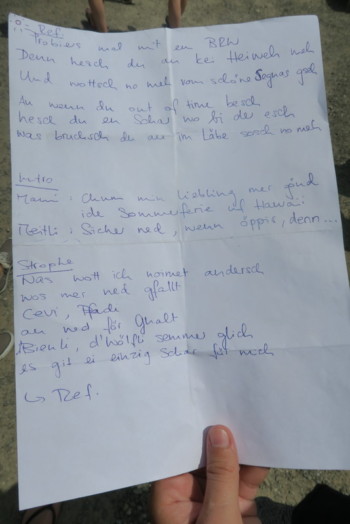 Ref.
Probiers mal mit em BRW
Denn hesch du au kei Heiweh meh
Und wottsch no meh vom schöne Sognas geh
Au wenn du out of time besch
hesch du en Schar wo bi der esch
Was bruchsch du au im Läbe sosch no meh
Intro
Mami : Chum min Liebling mer gönd
ide Sommerferie uf Hawaii
Meitli : Sicher ned, wenn öppis, denn ...
Strophe
Nai wott ich noimet andersch
wos mer ned gfallt
Cevi, Pfade
au ned för Gwalt
Bienli, d'Wölfli semmer glich
es git ei einzig Schar för mich
↳ Ref.